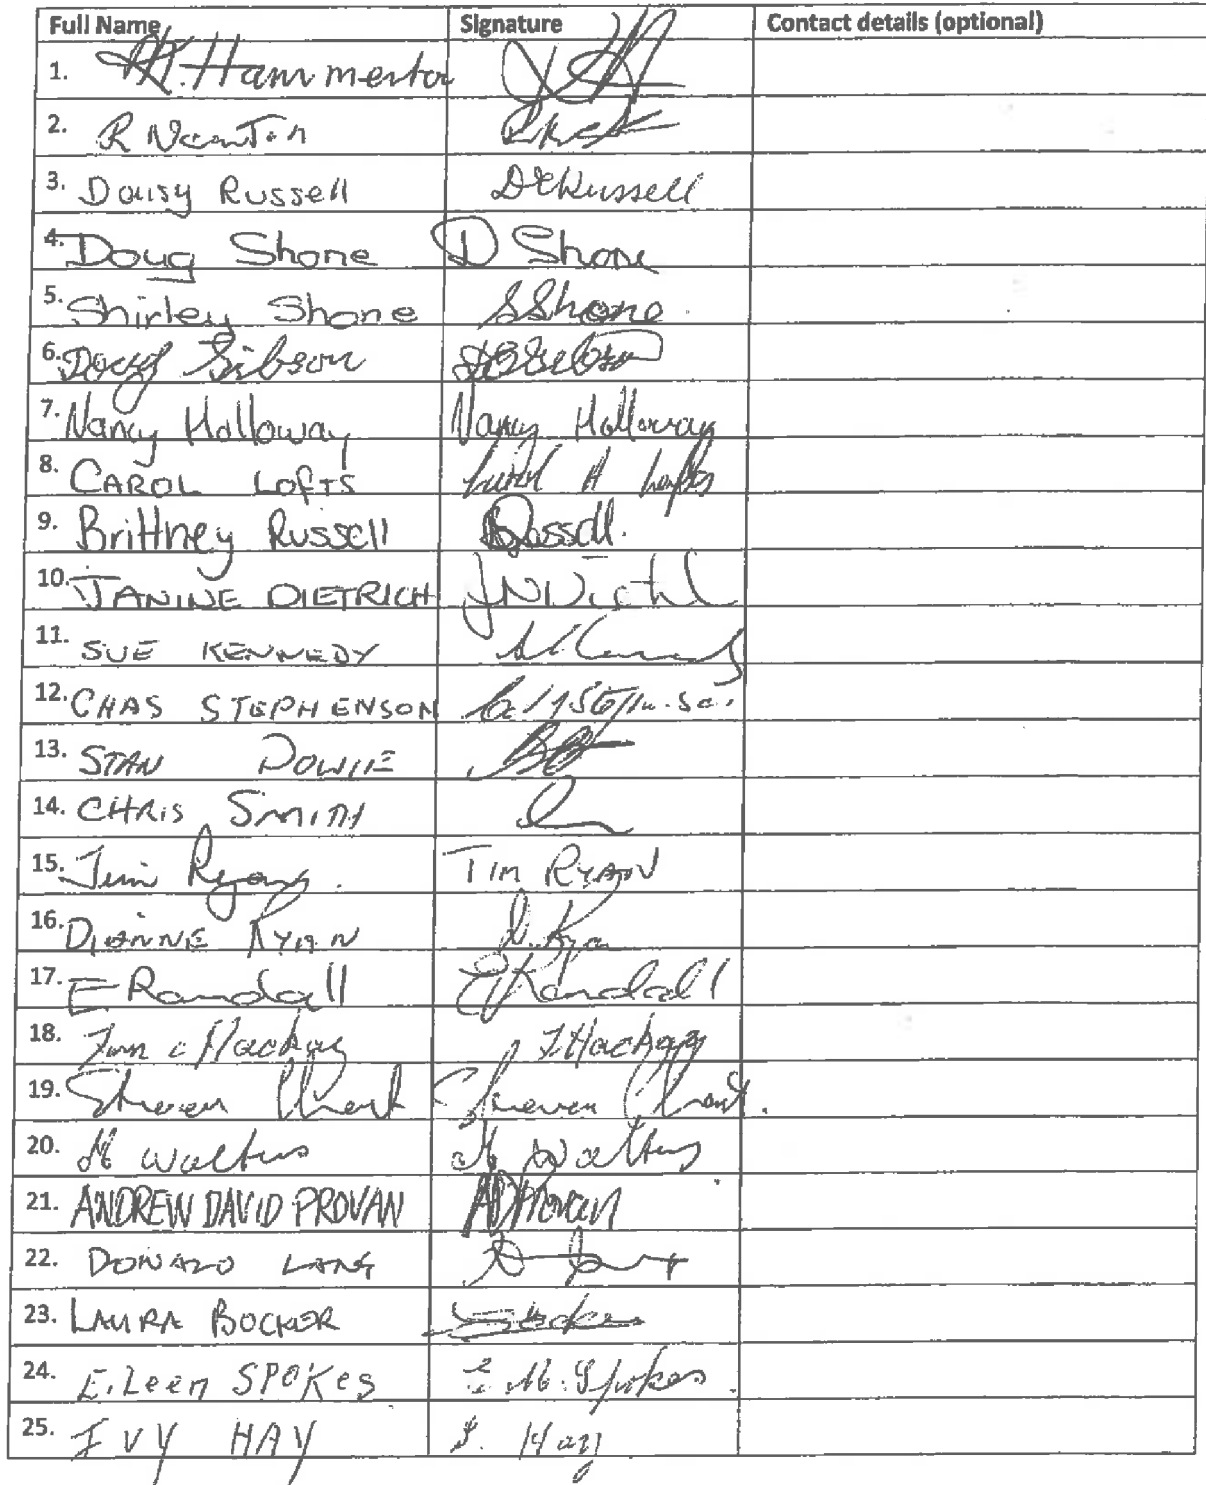 Full Name Signature Contact details (optional)
1. K. Hammerton
2. R Newton
3. Daisy Russell DERussell
4. Doug Shone D Shone
5. Shirley Shone SShone
6. Doug Gibson
7. Nancy Holloway Nancy Holloway
8. CAROL LOFTS Carol A Lofts
9. Brittney Russell BRussell.
10. JANINE DIETRICH
11. SUE KENNEDY
12. CHAS STEPHENSON
13. STAN DOWIE
14. CHRIS SMITH
15. Tim Ryan. TIM RYAN
16. DIANNE RYAN D. Rya
17. E Randall E Randall
18. Mackay Mackay
19. Steven Steven
20. M Walters M Walters
21. ANDREW DAVID PROVAN AD Provan
22. DONALD LANG
23. LAURA BOCKER
24. EiLeen SPOKes E. M. Spokes.
25. IVY HAY I. Hay